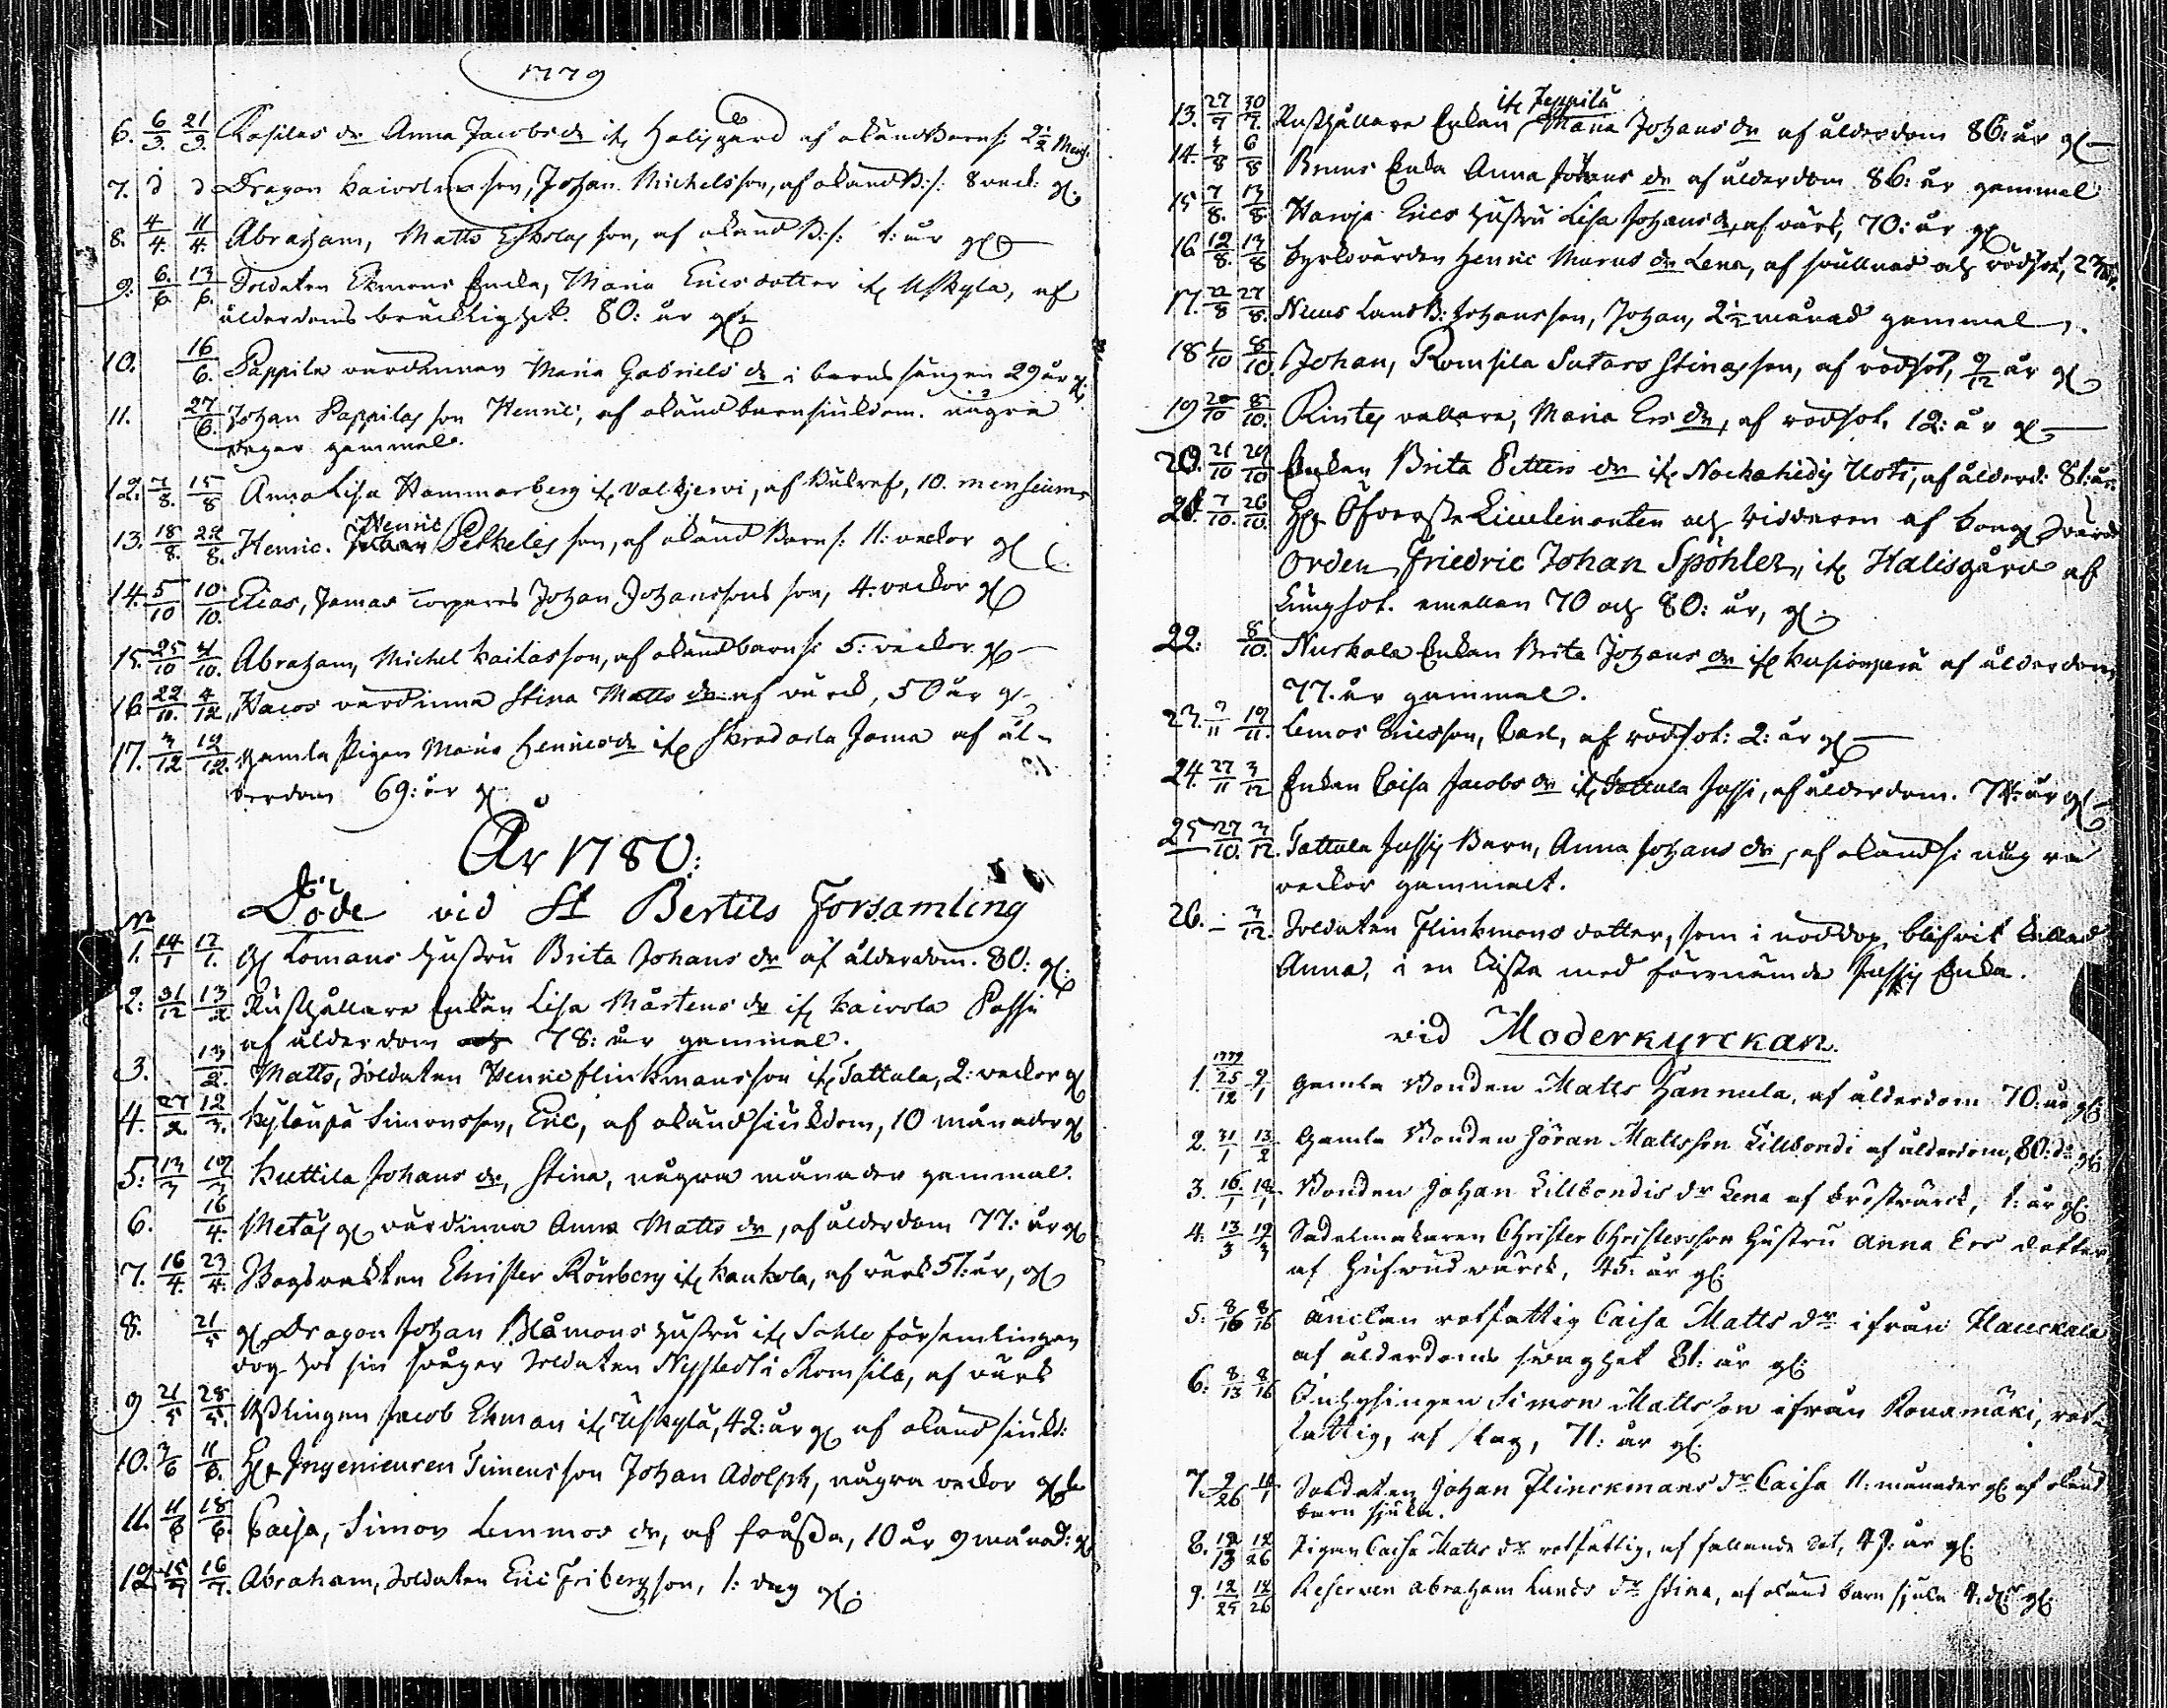 1779
6. 6/3. 21/3. Kosilas dr Anna Jacobs dr ifr Halisgård af okänd Barns: 2 1/2 Mens.
7. d d Dragon Kaivolas son, Johan Michelsson, af okänd B:s: 8 veck: gl.
8. 4/4. 11/4. Abraham, Matts son, af okänd B:s: 1: år gl
9. 6/6 13/6. Soldaten Ekmans Encka, Maria Ericsdotter ifr Uskyla, af
ålderdoms bräcklighet. 80: år gl.
10. 16/6. Pappila värdinnan Maria Gabriels dr i barnsängen 29 år gl.
11. 27/6. Johan Pappilas son Henric, af okänd barnsiukdom. några
dagar gammal.
12. 7/8. 15/8 Anna Lisa Hammarberg ifr Valkjervi, af 10. mensium
13. 18/8. 22/8. Henric. Henric Pelkeles son, af okänd Barns: 11: veckor gl
14. 5/10 10/10. Elias, Jamas Torparens Johan Johanssons son, 4. veckor gl
15. 25/10 /10. Abraham, Michel Kailas son, af okänd barns: 5: veckor gl
16. 22/10. 4/12. värdinna Stina Matts dr af värck, 50 år gl
17. 3/12 12/12. gamla Pigan Maria Henrics dr ifr Jama af ål-
derdom 69: år gl
År 1780:
Döde vid St Bertils Forsamling
No
1. 14/1 17/1. gl Lomans hustru Brita Johans dr af ålderdom. 80: gl.
2: 31/12 13/2. Rusthållare Enkan Lisa Mårtens dr ifr Kaivola Passi
af ålderdom 78: år gammal.
3. 13/2. Matts, Soldaten Henric Flinkmans son ifr Tattula, 2: veckor gl
4. 27/2. 12/3. Kyläupä Simonsson, Eric, af okänd siukdom, 10 månader gl
5: 13/3 19/3 Kuttila Johans dr, Stina, några månader gammal.
6. 16/4. Metäs gl värdinna Anna Matts dr, af ålderdom 77: år gl
7. 16/4. 23/4. Christer Rönberg ifr Kankola, af värk 51: år, gl
8. 21/5 gl Dragon Johan Blåmans hustru ifr Sahlo församlingen
dog hos sin svåger Soldaten Nystedt i Romsila, af värk
9 21/5 28/5. Jacob Ekman ifr Uskylä, 42: år gl af okänd siukd:
10. /6 11/6. Hr Ingenieuren Timeus son Johan Adolph, några veckor gl
11. 11/6 18/6. Caisa, Simon Lemmos dr, af frossa, 10 år 9 månad: gl
12. 15/7 16/7. Abraham, Soldaten Eric Fribergs son, 1: dag gl.
13. 27/7 30/7. Rusthållare Enkan ifr Jeppilä Maria Johans dr af ålderdom 86: år gl
14. /8 6/8 Bruns Enka Anna Johans dr af ålderdom 86: år gammal
15 7/8. 13/8. Harvja Erics hustru Lisa Johans dr, af värk, 70: år gl
16 12/8. 13/8 Kyrkovärden Henric Maras dr Lena, af svullnad och rödsot, 2
17. 22/8 27/8. Johansson, Johan, 2 1/2 månad gammal.
18 1/10 8/10. Johan, Romsila Sutars Stinas son, af rodsot, 9/12 år gl
19 20/10 8/10. Kintes vallare, Maria Ers dr, af rodsot, 12: år gl
20. 21/10 29/10 Enkan Brita Petters dr ifr Nockahidis Uoti, af ålderd: 81: år.
21. 7/10. 26/10. Hr Öfverste Lieutenanten och Riddaren af Kongl Svärds
Orden Friedric Johan Spöhler, ifr Halisgård af
Lungsot. emellan 70 och 80: år, gl.
22: 8/10. Nurkala Enkan Brita Johans dr ifr af ålderdom
77. år gammal.
23. 9/11 19/11. Lemos Ericsson, Carl, af rodsot: 2: år gl
24. 27/11 3/12 Enkan Caisa Jacobs dr ifr Tattula Jussi, af ålderdom. 74: år gl
25 27/10. 3/12. Tattula Jussis Barn, Anna Johans dr, af okänd s: några
veckor gammalt.
26. - 3/12. Soldaten Flinkmans dotter, som i nöddop blifvit kallad
Anna, i en kista med förenämde Jussis Enka.
vid Moderkyrckan.
1. 1779 25/12 9/1 Gamla Bonden Matts Hannula, af ålderdom 70: år gl:
2. 31/1 13/2 Gamla Bonden Jöran Mattsson Lillbondi af ålderdom, 80: år gl:
3. 16/1 /1 Bonden Johan Lillbondis dr Lena af bröstvärck, 1: år gl:
4. 13/3 19/3 Sadelmakaren Christer Christersson hustru Anna Ers dotter
af Hufvudwärck, 45: år gl:
5. 8/16 8/16 änckan rotfattig Caisa Matts dr ifrån Hauckala
af ålderdoms svaghet 81: år gl:
6: 8/13 8/16 Inhysingen Simon Mattsson ifrån Ronamäki, rot-
fattig, af slag, 71: år gl:
7. 9/26 /1 Soldaten Johan Flinckmans dr Caisa 11: månader gl af okänd
barn sjuka.
8. 12/13 12/26 Pigan Caisa Matts dr rotfattig, af fallande sot, 49: år gl:
9. 12/25 12/26 Reserven Abraham Lunds dr Stina, af okänd barn sjuka 4. gl: